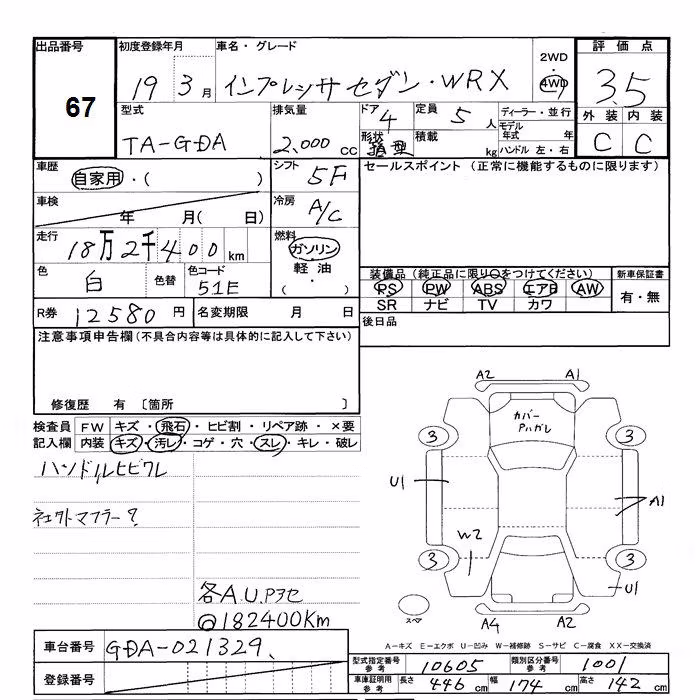 出品番号 初度登録年月 車名・グレード 2WD 評価点
67 19 3月 インプレッサ セダン・WRX 4WD 3.5
型式 排気量 ドア 4 定員 5人 ディーラー・並行 外装 内装
TA-GDA 2,000cc 形状 箱型 積載 kg モデル年式 年 C C
ハンドル 左・右
車歴 自家用・( ) シフト 5F セールスポイント(正常に機能するものに限ります)
車検 年 月( 日) 冷房 A/C
走行 18万2千400km 燃料 ガソリン
軽油
・( )
色 白 色替 色コード 51E 装備品(純正品に限り○をつけてください) 新車保証書
PS PW ABS エアB AW 有・無
SR ナビ TV カワ
R券 12580円 名変期限 月 日 後日品
注意事項申告欄(不具合内容等は具体的に記入して下さい)
修復歴 有 〔箇所 〕
検査員 FW キズ・飛石・ヒビ割・リペア跡・×要
記入欄 内装 キズ・汚レ・コゲ・穴・スレ・キレ・破レ
A2 A1
カバー
Pハガレ
3 3
ハンドルヒビワレ
U1 A1
マフラー?
W2
3 3
U1
各A.U.Pアセ
@182400Km
スペア
A4 A2
A-キズ E-エクボ U-凹み W-補修跡 S-サビ C-腐食 XX-交換済
車台番号 GDA-021329
登録番号
型式指定番号 参考 10605 類別区分番号 参考 1001
車庫証明用 参考 長さ 446cm 幅 174cm 高さ 142cm